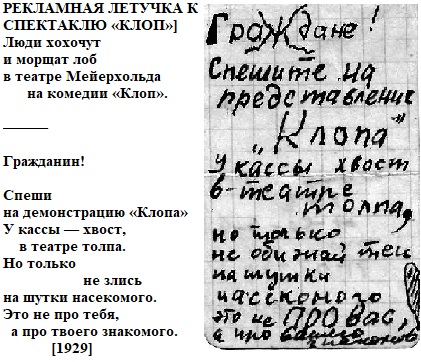 РЕКЛАМНАЯ ЛЕТУЧКА К
СПЕКТАКЛЮ «КЛОП»]
Люди хохочут
и морщат лоб
в театре Мейерхольда
на комедии «Клоп».
———
Гражданин!
Спеши
на демонстрацию «Клопа»
У кассы — хвост,
в театре толпа.
Но только
не злись
на шутки насекомого.
Это не про тебя,
а про твоего знакомого.
[1929]
Граждане!
Спешите на
представление
„Клопа”
У кассы хвост
в театре
толпа,
но только
не обижай
на шутки
насекомого
это не про вас,
а про